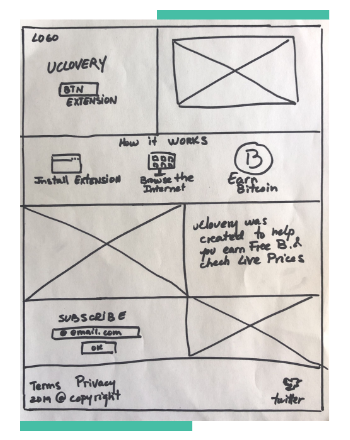 LOGO
UCLOVERY
BTN
EXTENSION
How it WORKS
Install Extension
Browse the
Internet
B
Earn
Bitcoin
uclovery was
created to help
you earn Free B. &
check Live Prices
SUBSCRIBE
@ email.com
OK
Terms Privacy
2019 @ copyright
twitter